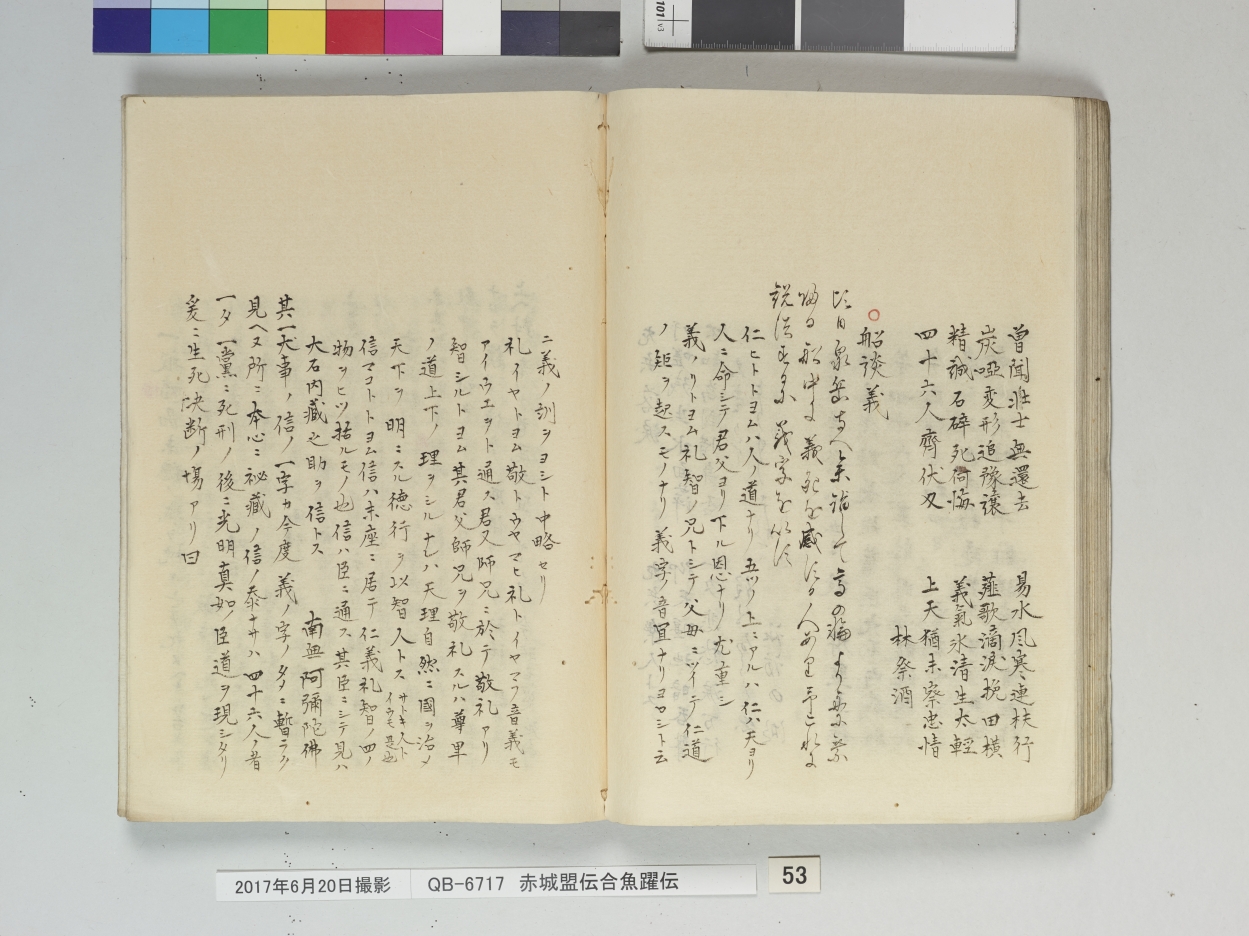 曽聞壮士無還去　易水風寒連袂行
炭唖変形追豫讓　薤歌滴涙挽田横
精誠石碎死何悔　義氣氷清生太輕
四十六人齊伏刃　上天猶未察忠情
林祭酒
船談義
頃日泉岳寺へ参詣して高の輪より乗
帰る船中に義死を感
説法
仁ヒトトヨムハ人ノ道ナリ五ツノ上ニアルハ仁ハ天ヨリ
人ニ命シテ君父ヨリ下ル恩ナリ尤重シ
義ノリトヨム礼智ノ兄トシテ父母ニツイテ仁道
ノ矩ヲ起スモノナリ義字ノ音宜ナリヨロシト云
ニ義ノ訓ヲヨシト中略セリ
礼イヤトヨム敬トウヤマヒ礼トイヤマフ音義モ
アイウエヲト通ス君父師兄ニ於テ敬礼アリ
智シルトヨム其君父師兄ヲ敬礼スルハ尊卑
ノ道上下ノ理ヲシルナレハ天理自然ニ國ヲ治メ
天下ヲ明ニスル徳行ヲ以智人トス サトキ人ト
イウモ是也
信マコトトヨム信ハ末座ニ居テ仁義礼智ノ四ノ
物ヲヒツ括ルモノ也信ハ臣ニ通ス其臣ニシテ見ハ
大石内蔵之助ヲ信トス　南無阿彌陀佛
其一大事ノ信ノ一字カ今度義ノ字ノタメニ暫ラク
見ヘヌ所ニ本心ニ祕藏ノ信ノ泰ナサハ四十六人ノ者
一タ一黨ニ死刑ノ後ニ光明真如ノ臣道ヲ現シタリ
爰ニ生死決断ノ場アリ曰
2017年6月20日撮影　QB-6717　赤城盟伝合魚躍伝
53
101 v3